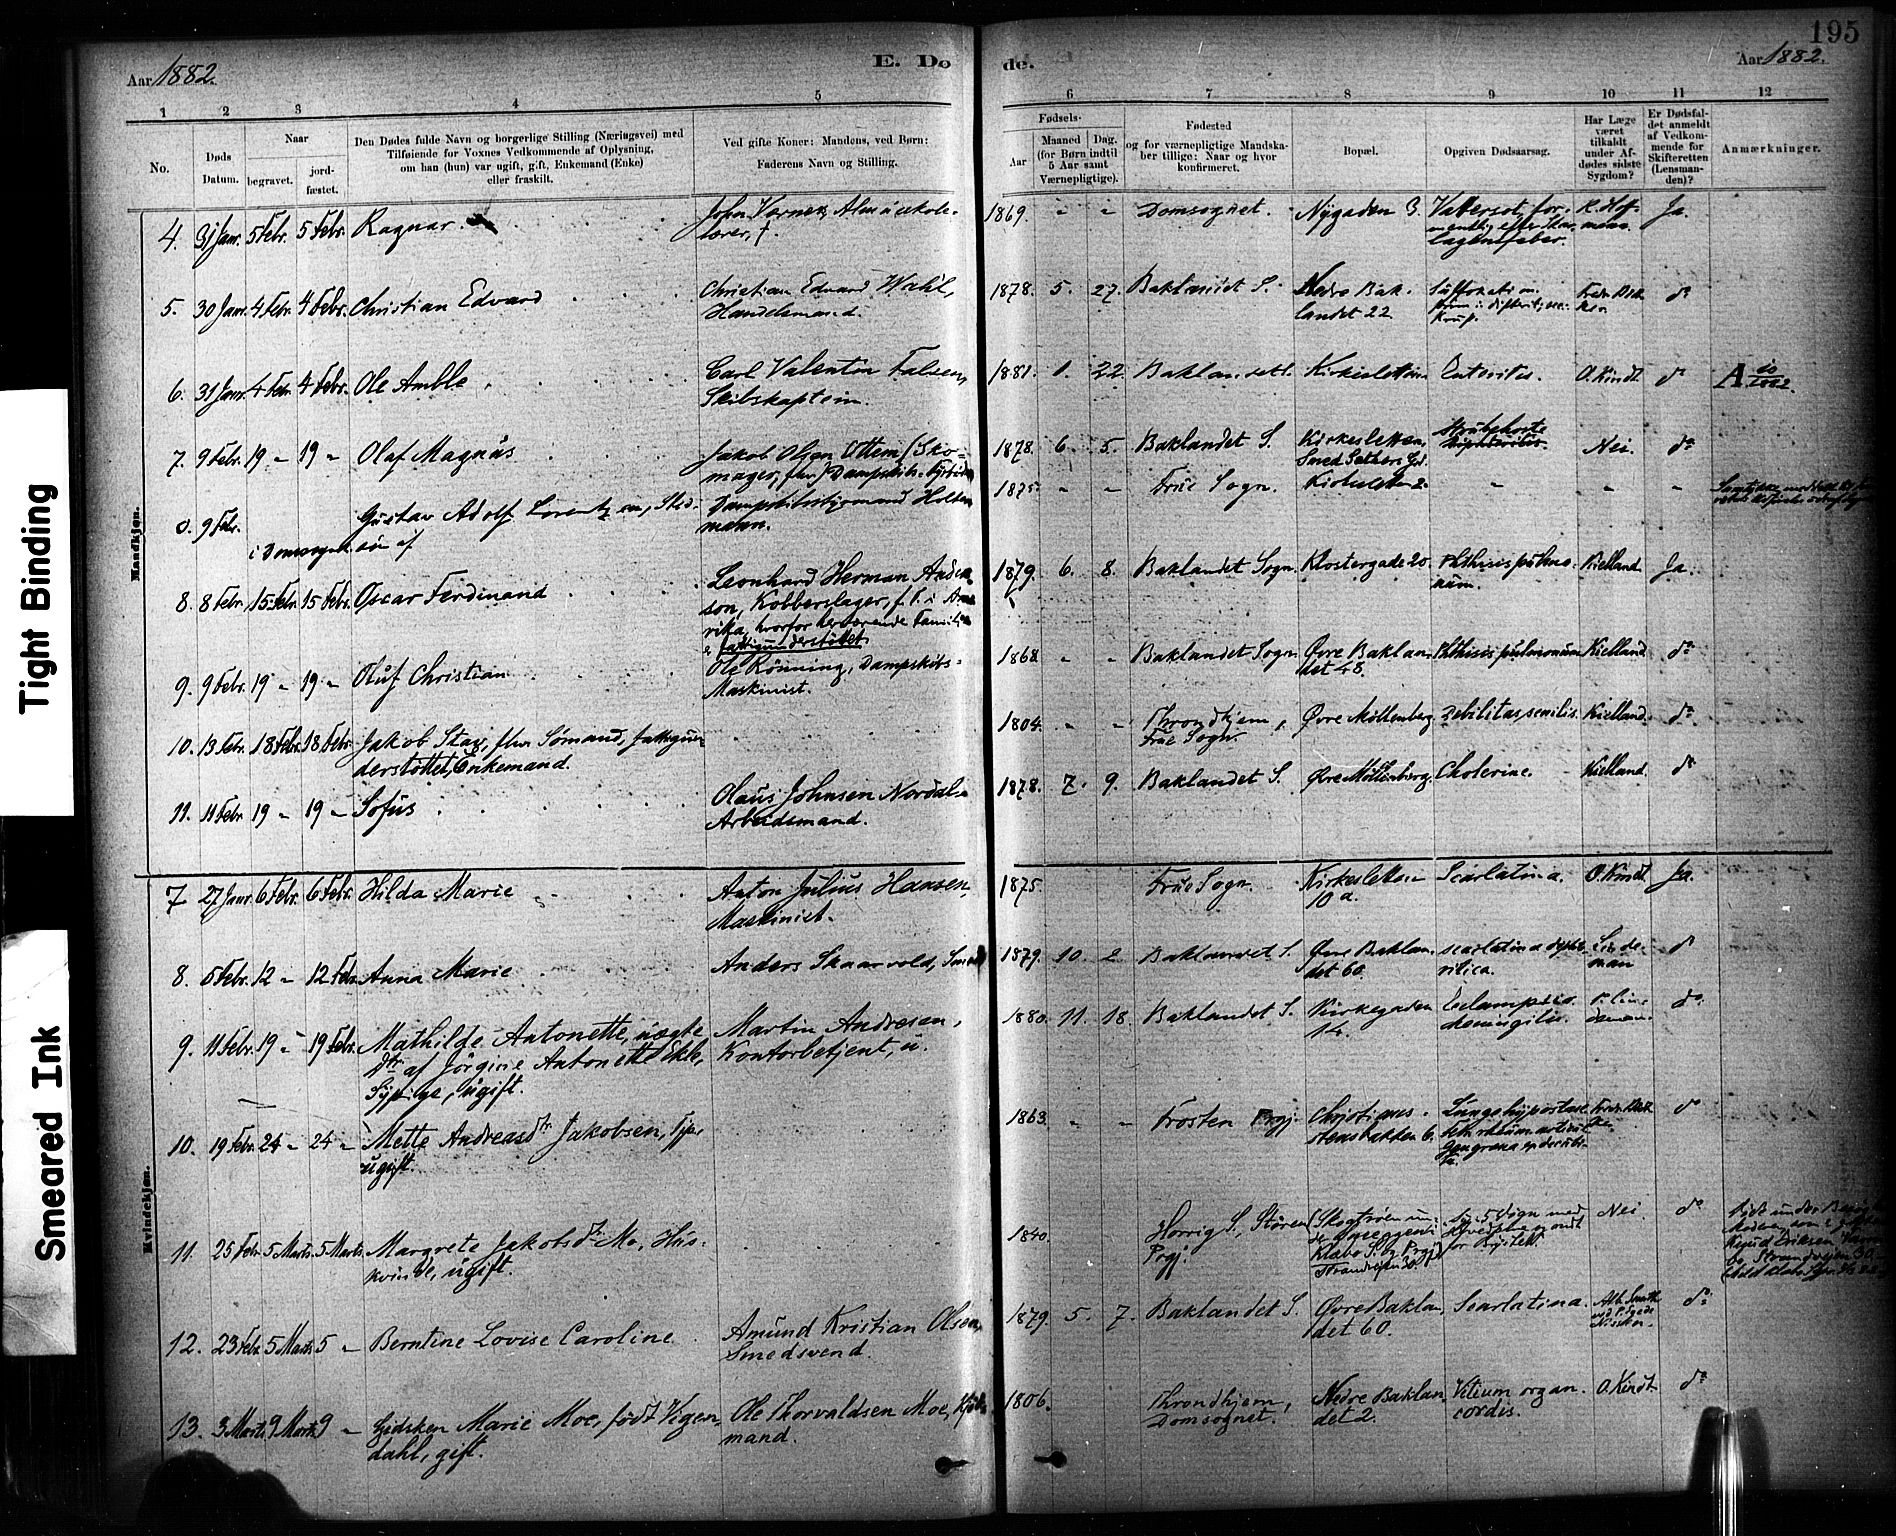 195
Aar 1882.
E. Dø
de.
Aar 1882.
1 2 3 4 5 6 7 8 9 10 11 12
No.
Døds Datum.
Naar
begravet.
jord-
fæstet.
Den Dødes fulde Navn og borgerlige Stilling (Næringsvei) med
Tilføiende for Voxnes Vedkommende af Oplysning,
om han (hun) var ugift, gift, Enkemand (Enke)
eller fraskilt.
Ved gifte Koner: Mandens, ved Børn:
Faderens Navn og Stilling.
Fødsels-
Aar
Maaned
(for Børn indtil
5 Aar samt
Værnepligtige).
Dag.
Fødested
og for værnepligtige Mandska-
ber tillige: Naar og hvor
konfirmeret.
Bopæl.
Opgiven Dødsaarsag.
Har Læge
været
tilkaldt
under Af-
dødes sidste
Sygdom?
Er Dødsfal-
det anmeldt
af Vedkom-
mende for
Skifteretten
(Lensman-
den)?
Anmærkninger.
Mandkjøn.
4. 31 Janr. 5 Febr. 5 Febr. Ragnar. John Værnes, Almueskole-
lærer, f. 1869. " " Domsognet. Nygaden 3. Vatersot, for-
mentlig efter Skar-
lagensfeber. Ja.
5. 30 Janr. 4 Febr. 4 Febr. Christian Edvard Christian Edvard Wahl,
Handelsmand. 1878. 5. 27. Baklandet S. Nedre Bak-
landet 22 do
6. 31 Janr. 4 Febr. 4 Febr. Ole Amble. Carl Valentin Falsen,
Skibskaptein. 1881. 1. 22. Baklandet. Kirkesletten Enteritis. O. Kindt. do A
7. 9 Febr. 19 " 19 " Olaf Magnus Jakob Olsen Ottem (Sko-
mager, 1878. 6. 5. Baklandet S. Kirkesletten, Strubehoste Nei. do
0. 9 Febr. i Domsognet Gustav Adolf Lorentzen, Sted-
søn af Dampskibsstyrmand Holter-
mann. 1875. " " Frue Sogn. Kirkesletten 2. " " "
8. 8 Febr. 15 Febr. 15 Febr. Oscar Ferdinand Leonhard Herman Ander-
son, Kobberslager, f. T. i Ame-
rika, hvorfor herværende Familie
er fattigunderstøttet 1879. 6. 8. Baklandet Sogn. Klostergade 20. Phthisis pulmo-
num. Kielland Ja.
9. 9 Febr. 19 " 19 " Oluf Christian Ole Rønning, Dampskibs-
Maskinist. 1868 " " Baklandet Sogn Øvre Baklan-
det 48. Phthisis pulmonum Kielland do
10. 13 Febr. 18 Febr. 18 Febr. Jakob Stav, fhv Sømand, fattigun-
derstøttet, Enkemand. 1804. " " Throndhjem,
Frue Sogn. Øvre Møllenberg. Debilitas senilis. Kielland. do
11. 11 Febr. 19 " 19 " Sofus Olaus Johnsen Nordal,
Arbeidsmand. 1878. 7. 9. Baklandet S. Øvre Møllenberg. Cholerine. Kielland. do
Kvindekjøn.
7 27 Janr. 6 Febr. 6 Febr. Hilda Marie Anton Julius Hansen,
Maskinist. 1875. Frue Sogn. Kirkesletten
10 a. Scarlatina. O. Kindt Ja.
8. 5 Febr. 12 " 12 Febr. Anna Marie Anders Skaarvold, Smed 1879. 10. 2 Baklandet S. Øvre Baklan-
det 60. Scarlatina diphte-
ritica. Linde-
man do
9. 11 Febr. 19 " 19 Febr. Mathilde Antonette, uægte
Dtr af Jørgine Antonette Ekle,
Sypige, ugift. Martin Andresen,
Kontorbetjent, u. 1880. 11. 18. Baklandet S. Kirkegaden
14. Eclampsia do.
10. 19 Febr. 24 " 24 " Mette Andreasdtr Jakobsen, Tje,
ugift. 1863. " " Frosten Prgj. Christians-
stensbakken 6. do
11. 25 Febr. 5 Marts. 5 Marts. Margrete Jakobsdtr Mo, Hus-
kvinde, ugift. 1840. Horrig S. Støren
Prgj.
Strandveien 30. Nei. do
12. 23 Febr. 5 Marts 5 " Berntine Lovise Caroline Amund Kristian Olsen,
Smedsvend. 1879. 5. 7. Baklandet S. Øvre Baklan-
det 60. Scarlatina. do
13. 3 Marts. 9 Marts. 9 " Gidsken Marie Moe, født Vigen-
dahl, gift. Ole Thorvaldsen Moe, Kjøb-
mand. 1806. Throndhjem,
Domsognet. Nedre Baklan-
det 2. Vitium organ.
cordis. O. Kindt do
Tight Binding
Smeared Ink